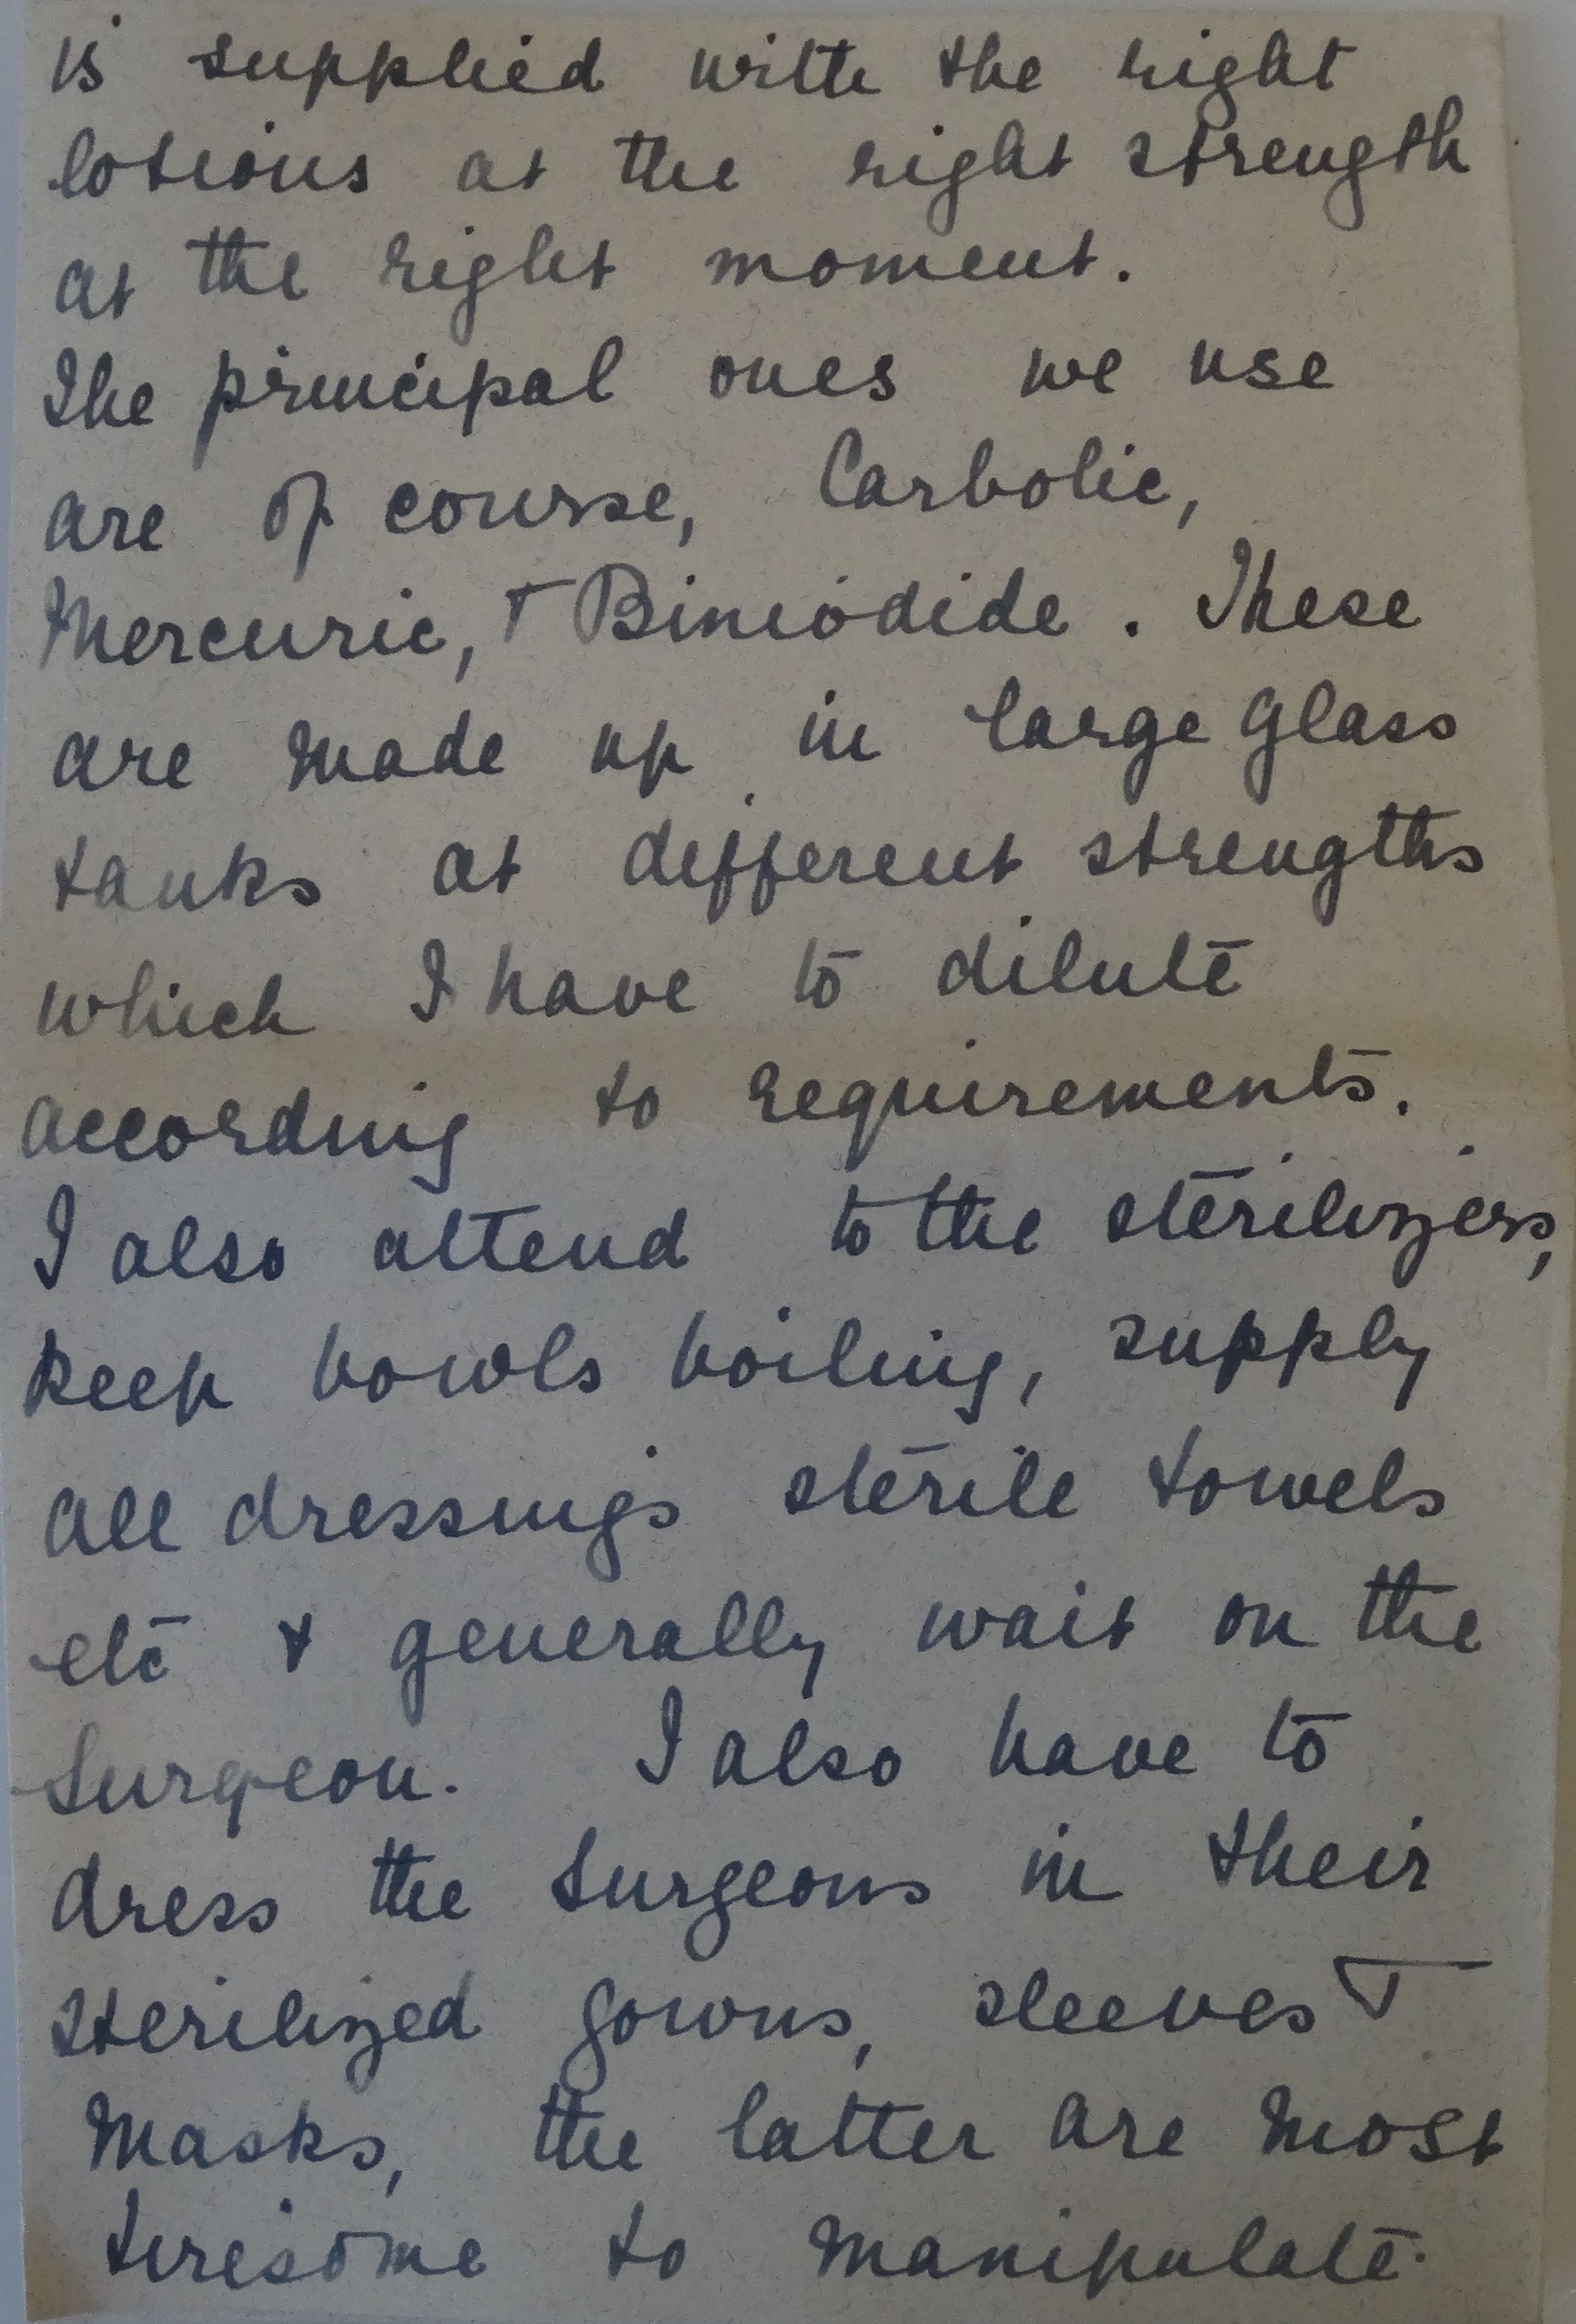 is supplied with the right
lotions at the right strength
at the right moment.
The principal ones we use
are of course, Carbolic,
Mercuric, + Biniodide. These
are made up in large glass
tanks at different strengths
which I have to dilute
according to requirements.
I also attend to the sterilizers,
keep bowls boiling, supply
all dressings sterile towels
etc + generally wait on the
Surgeon. I also have to
dress the Surgeons in their
sterilized gowns, sleeves +
masks, the latter are most
tiresome to manipulate.